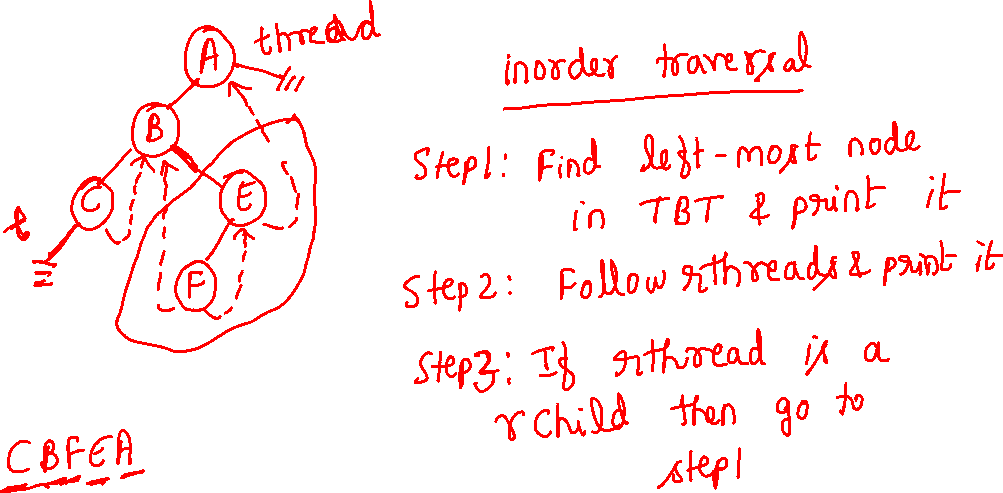 thread
A
B
C
E
F
t
CBFEA
inorder traversal
Step1: Find left-most node
in TBT & print it
Step 2: Follow rthreads & print it
Step3: If rthread is a
rchild then go to
step1